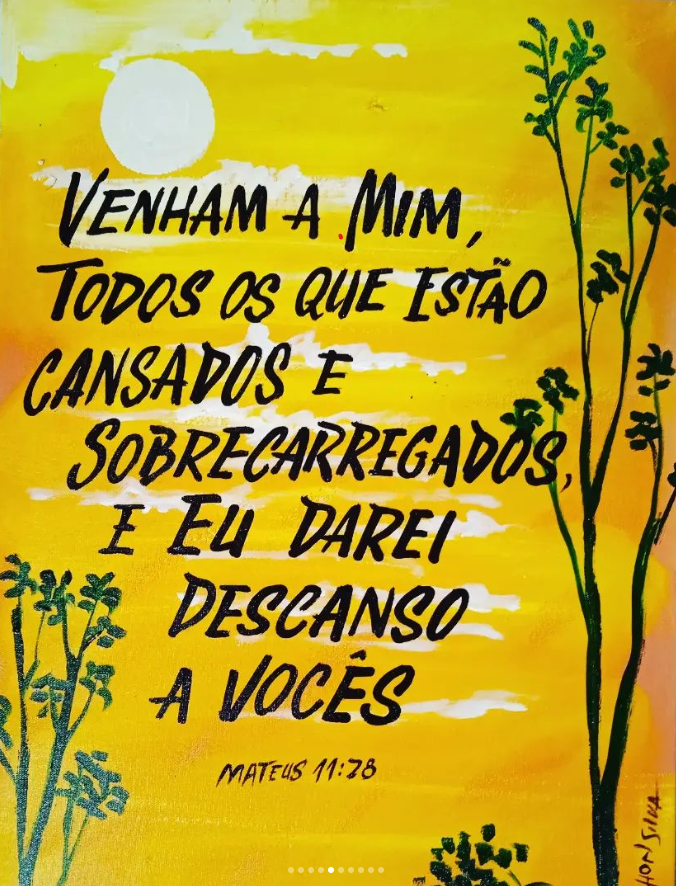 VENHAM A MIM,
TODOS OS QUE ESTÃO
CANSADOS E
SOBRECARREGADOS,
E EU DAREI
DESCANSO
A VOCÊS
MATEUS 11:28
SILVA